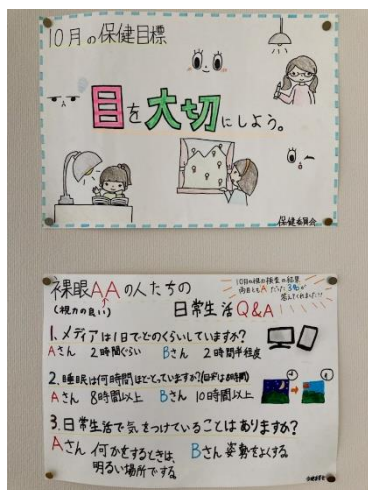 10月の保健目標
目を大切にしよう。
保健委員会
裸眼AAの人たちの
(視力の良い)
日常生活Q&A
10月の視力検査の結果
両目ともAだった3名が
答えてくれました!!
1. メディアは1日でどのくらいしていますか?
Aさん 2時間くらい Bさん 2時間半程度
2. 睡眠は何時間ほどとっていますか?
Aさん 8時間以上 Bさん 10時間以上
3. 日常生活で気をつけていることはありますか?
Aさん 何かをするときは、
明るい場所でする。
Bさん 姿勢をよくする。
保健委員会